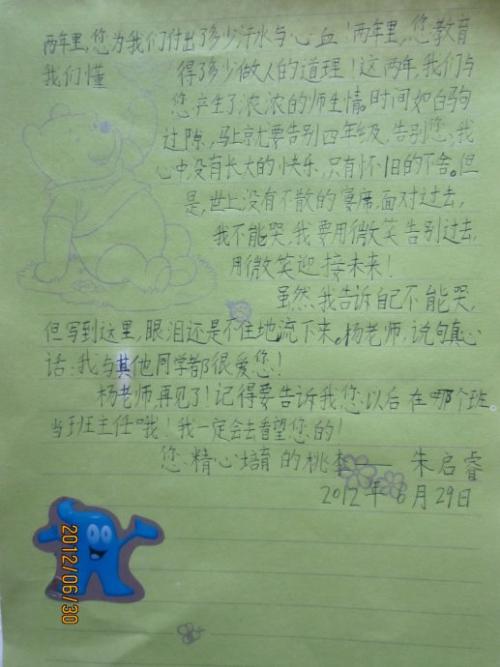 两年里,您为我们付出了多少汗水与心血!两年里,您教育
我们懂得了多少做人的道理!这两年,我们与
您产生了浓浓的师生情。时间如白驹
过隙,马上就要告别四年级,告别您,我
心中没有长大的快乐,只有怀旧的不舍。但
是,世上没有不散的宴席,面对过去,
我不能哭,我要用微笑告别过去,
用微笑迎接未来!
虽然,我告诉自己不能哭,
但写到这里,眼泪还是不住地流下来。杨老师,说句真心
话:我与其他同学都很爱您!
杨老师,再见了!记得要告诉我您以后在哪个班。
当班主任哦!我一定会去看望您的!
您精心培育的桃李——朱启睿
2012年6月29日
2012/06/30